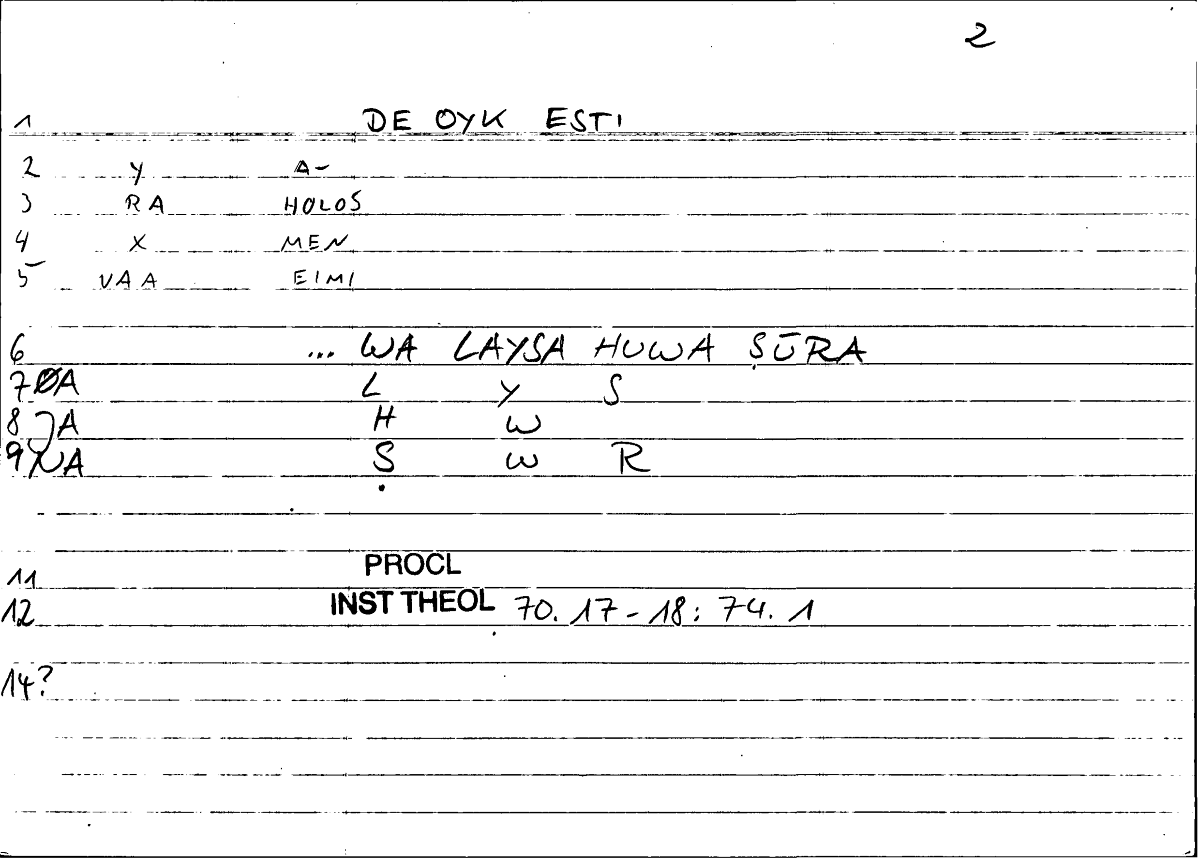 2
1 DE OYK ESTI
2 Y A-
3 RA HOLOS
4 X MEN
5 VAA EIMI
6 ... WA LAYSA HUWA ṢŪRA
7 ØA L Y S
8 JA H W
9 NA Ṣ W R
11 PROCL
12 INST THEOL 70. 17-18: 74. 1
14?